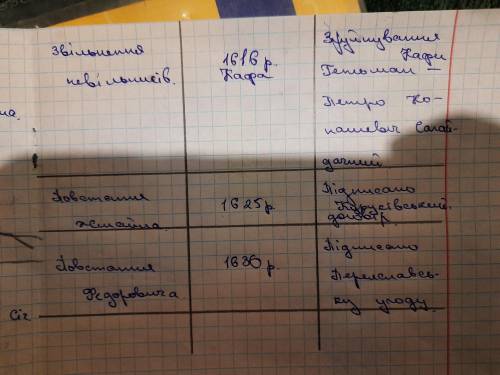 Звільнення
невільників.
1616 р.
Кафа
Зруйнування
Кафи
Гетьман —
Петро Ко-
нашевич Сагай-
дачний
Повстання
Жмайла.
1625р.
Підписано
Куруківський
договір.
Повстання
Федоровича.
1630 р.
Підписано
Переяславсь-
ку угоду.
Січ
на.